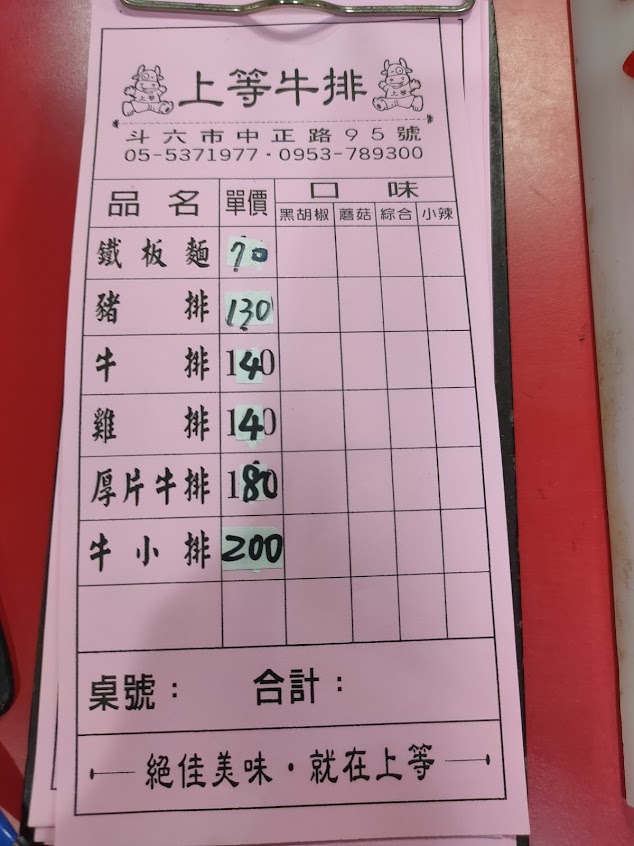 上等牛排
斗六市中正路95號
05-5371977·0953-789300
品名 單價 口味
黑胡椒 蘑菇 綜合 小辣
鐵板麵 70
豬排 130
牛排 140
雞排 140
厚片牛排 180
牛小排 200
桌號： 合計：
絕佳美味·就在上等